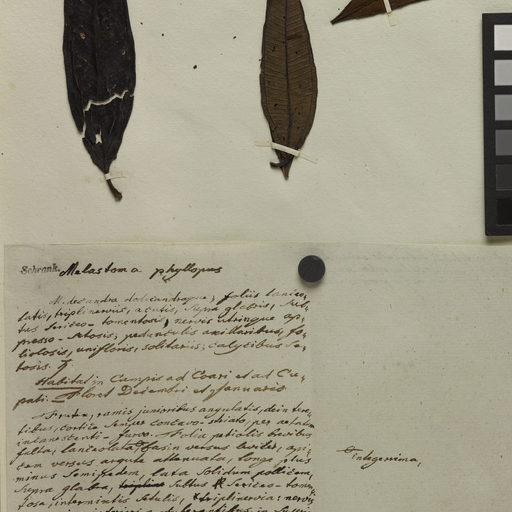 Schrank. Melastoma phyllopus
M. decandra dodecandraque, foliis lanceo-
latis, triplinerviis, acutis, supra glabris, sub-
tus sericeo-tomentosis, nervis utrinque ap-
presso-setosis; pedunculis axillaribus, fo-
liolosis, unifloris, solitariis; calycibus se-
tosis. ♄
Habitat in Campis ad Coari et ad Cu-
pati. Floret Decembri et Januario
Frutex, ramis junioribus angulatis, dein tere-
tibus, cortice semper concavo-striato, per aetatem
incanescenti-fusco. Folia petiolis brevibus
fulta, lanceolata, basi versus leviter, api-
cem versus argute attenuata, longa plus
minus semipedem, lata solidum pollicem,
supra glabra, subtus sericeo-tomen-
tosa, intermixtis setulis, triplinervia: nervis
integerrima,